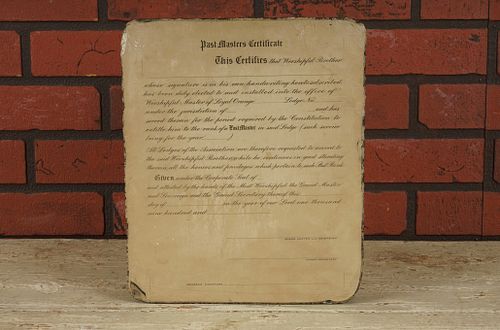 Past Masters Certificate
This Certifies that Worshipful Brother
whose signature is in his own handwriting hereto subscribed,
has been duly elected to and installed into the office of
Worshipful Master of Loyal Orange Lodge No.
under the jurisdiction of and has
served therein for the period required by the Constitution to
entitle him to the rank of a Past Master in said Lodge (such service
being for the year )
All Lodges of the Association are therefore requested to accord to
the said Worshipful Brother, while he continues in good standing
therein, all the honors and privileges which pertain to such Past Rank.
Given under the Corporate Seal of
and attested by the hands of the Most Worshipful the Grand Master
and Sovereign and the Grand Secretary thereof this
day of in the year of our Lord one thousand
nine hundred and
GRAND MASTER AND SOVEREIGN
GRAND SECRETARY